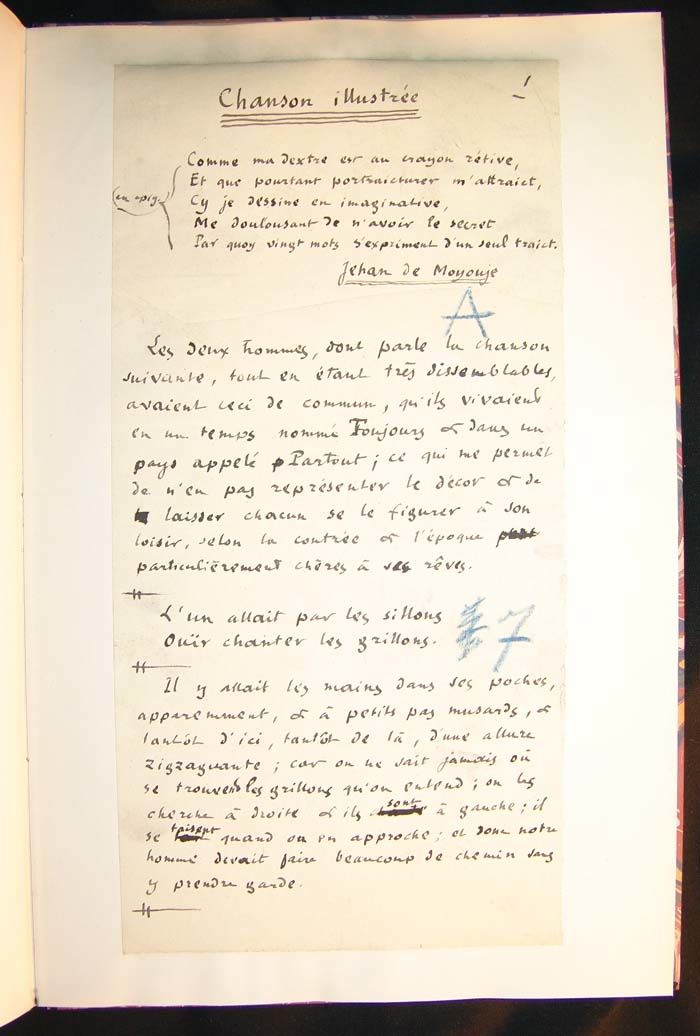 1
Chanson illustrée
Comme ma dextre est au crayon rétive,
Et que pourtant portraicturer m'attraict,
(en épig.
Cy je dessine en imaginative,
Me doulousant de n'avoir le secret
Par quoy vingt mots s'expriment d'un seul traict.
Jehan de Moyouje
A
Les deux hommes, dont parle la chanson
suivante, tout en étant très dissemblables,
avaient ceci de commun, qu'ils vivaient
en un temps nommé Toujours & dans un
pays appelé Partout ; ce qui me permet
de n'en pas représenter le décor & de
laisser chacun se le figurer à son
loisir, selon la contrée & l'époque
particulièrement chères à ses rêves.
L'un allait par les sillons
Ouïr chanter les grillons.
7
Il y allait les mains dans ses poches,
apparemment, & à petits pas musards, &
tantôt d'ici, tantôt de là, d'une allure
zigzaguante ; car on ne sait jamais où
se trouvent les grillons qu'on entend ; on les
cherche à droite & ils sont à gauche ; il
se taisent quand on en approche ; et donc notre
homme devait faire beaucoup de chemin sans
y prendre garde.